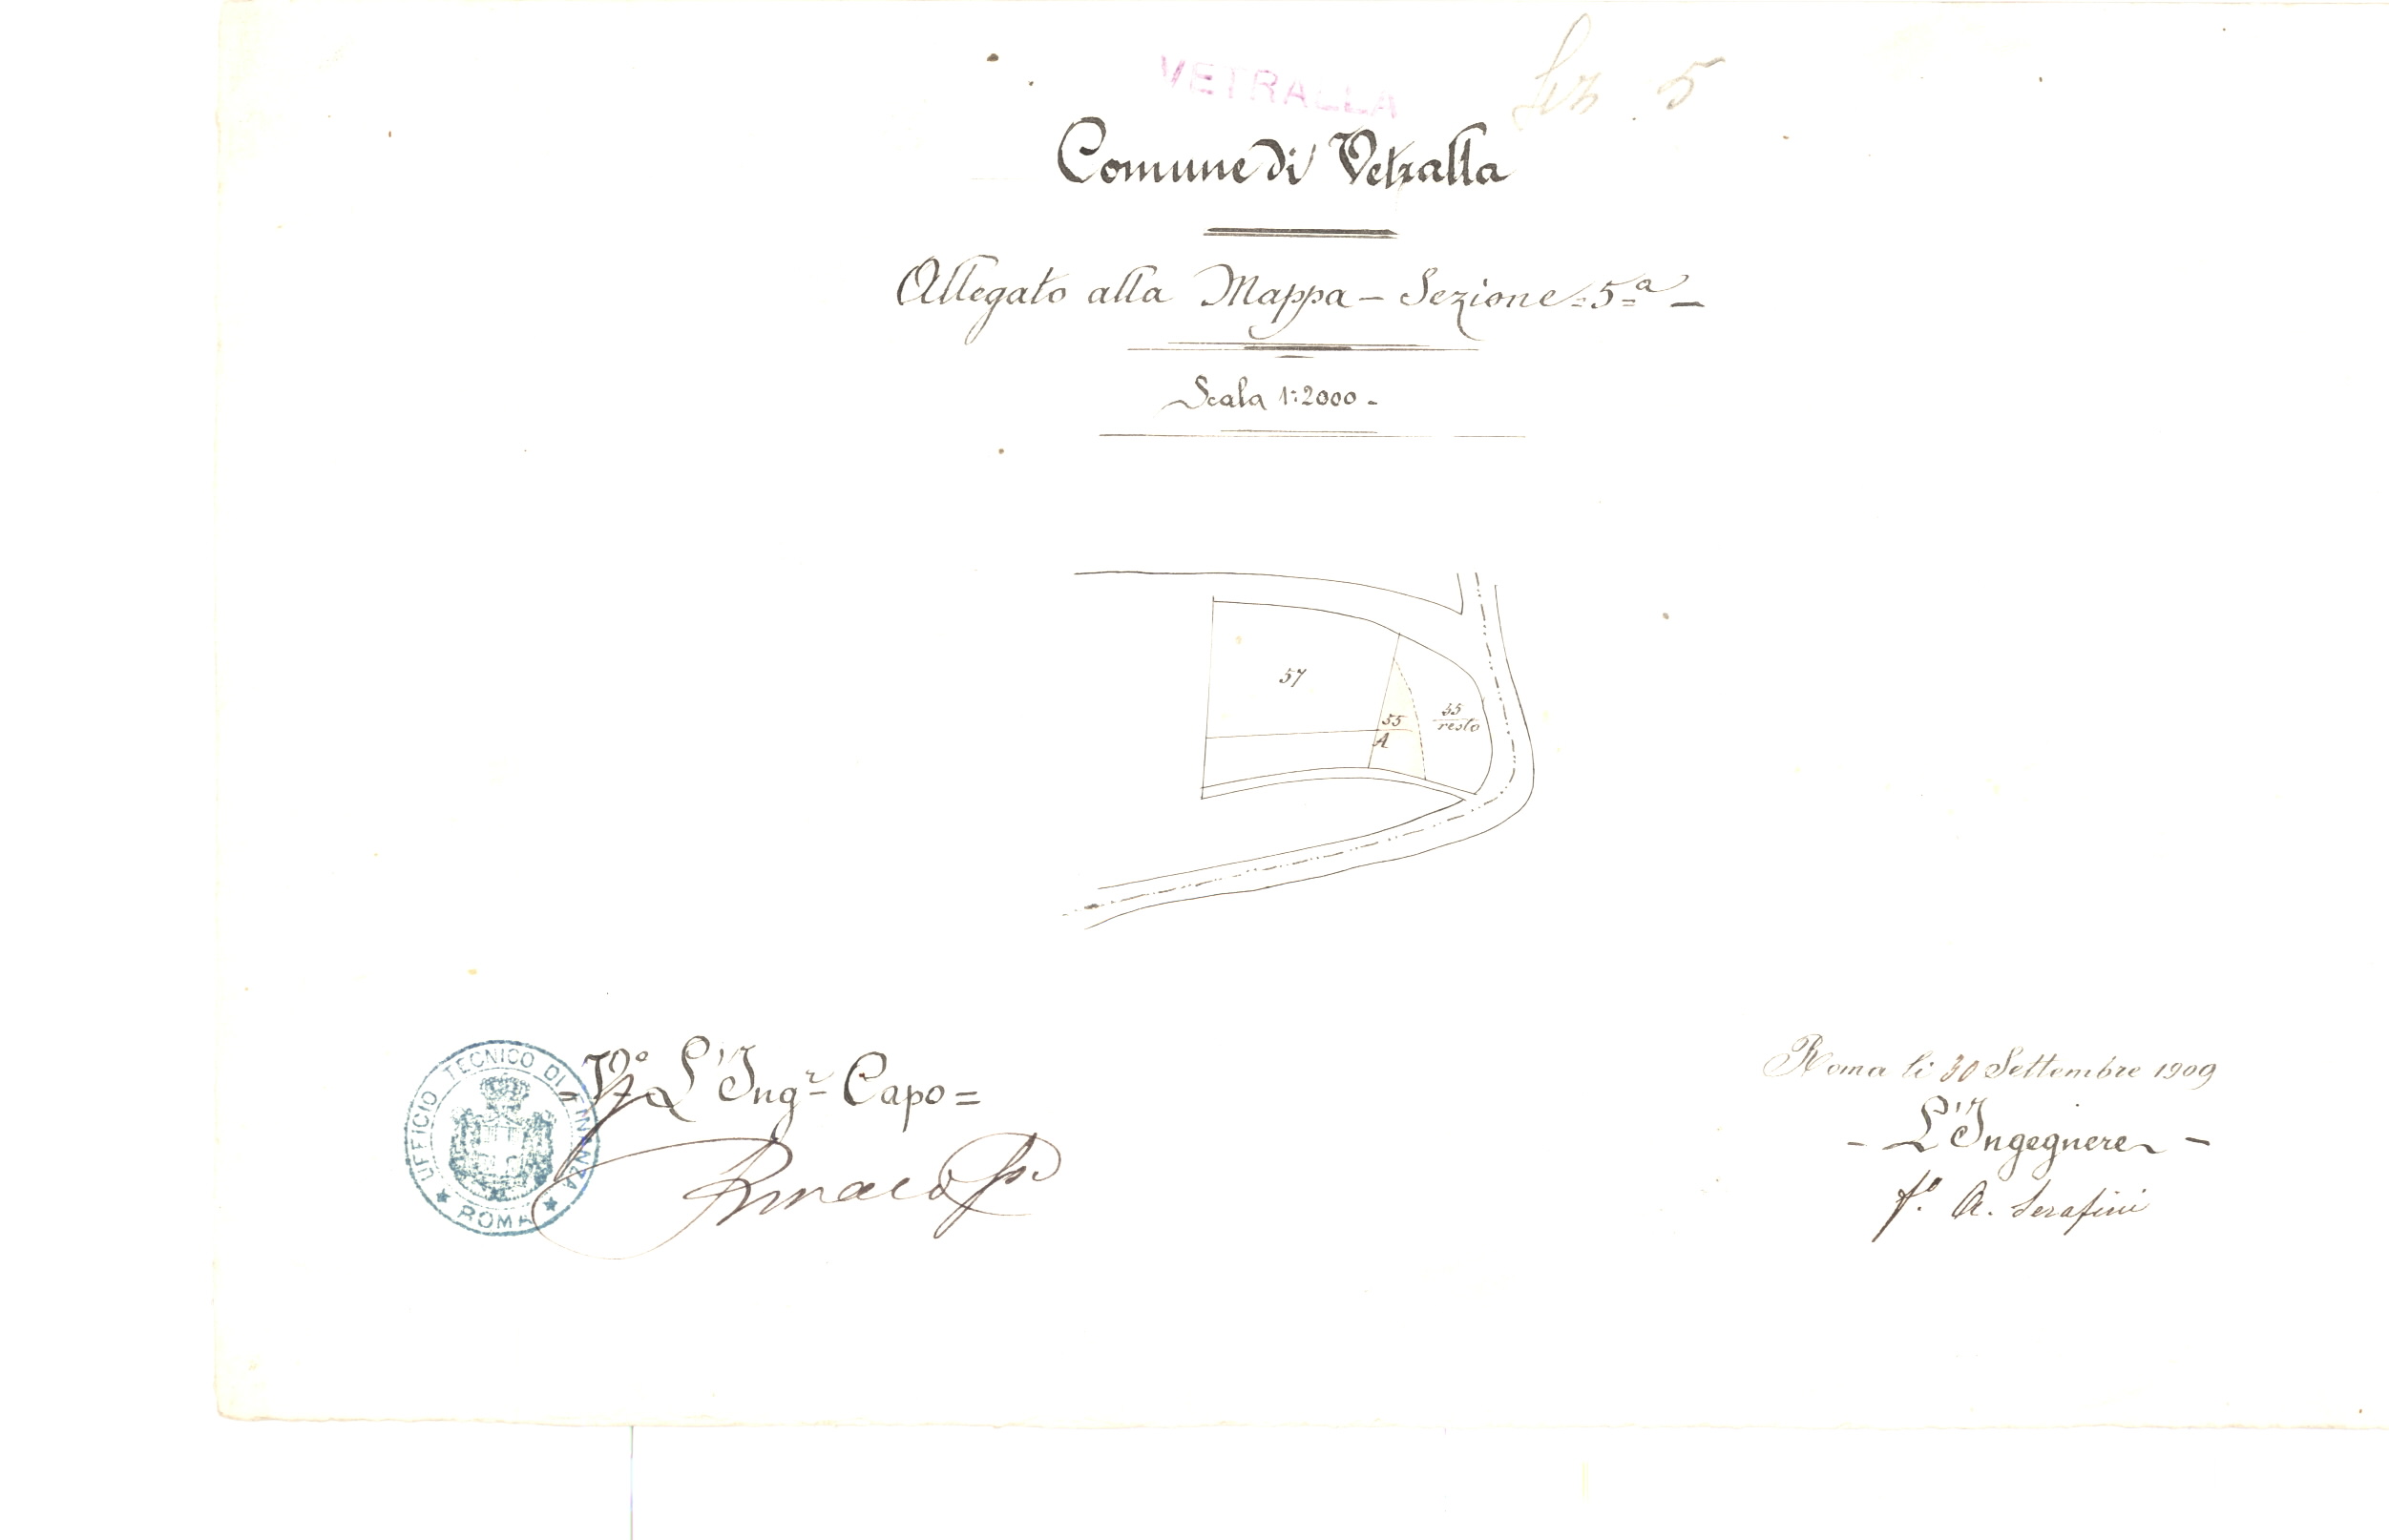 VETRALLA
Sez. 5
Comune di Vetralla
Allegato alla Mappa - Sezione = 5=ª -
Scala 1:2000 -
57
55
A
55
resto
UFFICIO TECNICO DI FINANZA
★ ROMA ★
= V.° L'Ing.r Capo =
Roma li 30 Settembre 1909
- L'Ingegnere -
f.° A. Serafini